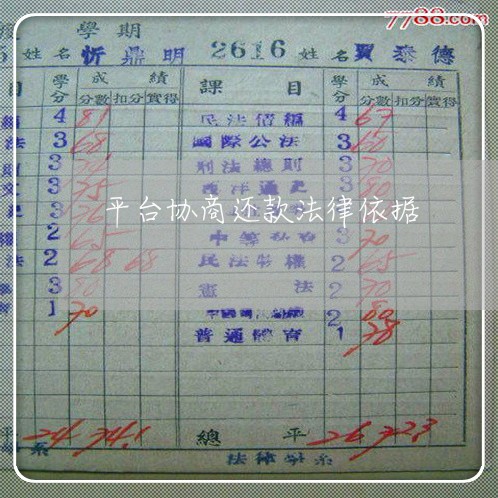 7788.com
學期
姓名 忻鼎明 2616 姓名 賈泰德
目 學分 成績 課目 學分 成績
分數 扣分 實得 分數 扣分 實得
4 81 民法債編 4 67
法 3 68 國際公法 3 60
3 刑法總則 3 70
3 75 西洋通史 3 80
平台协商还款法律依据
3 76 3
2 65 3 70
法 2 68 68 民法物權 2 65
3 80 憲法 2 70
1 70 2 80
普通體育 1 78
平 24 74.1 總平 26 72.3
系 法律學系